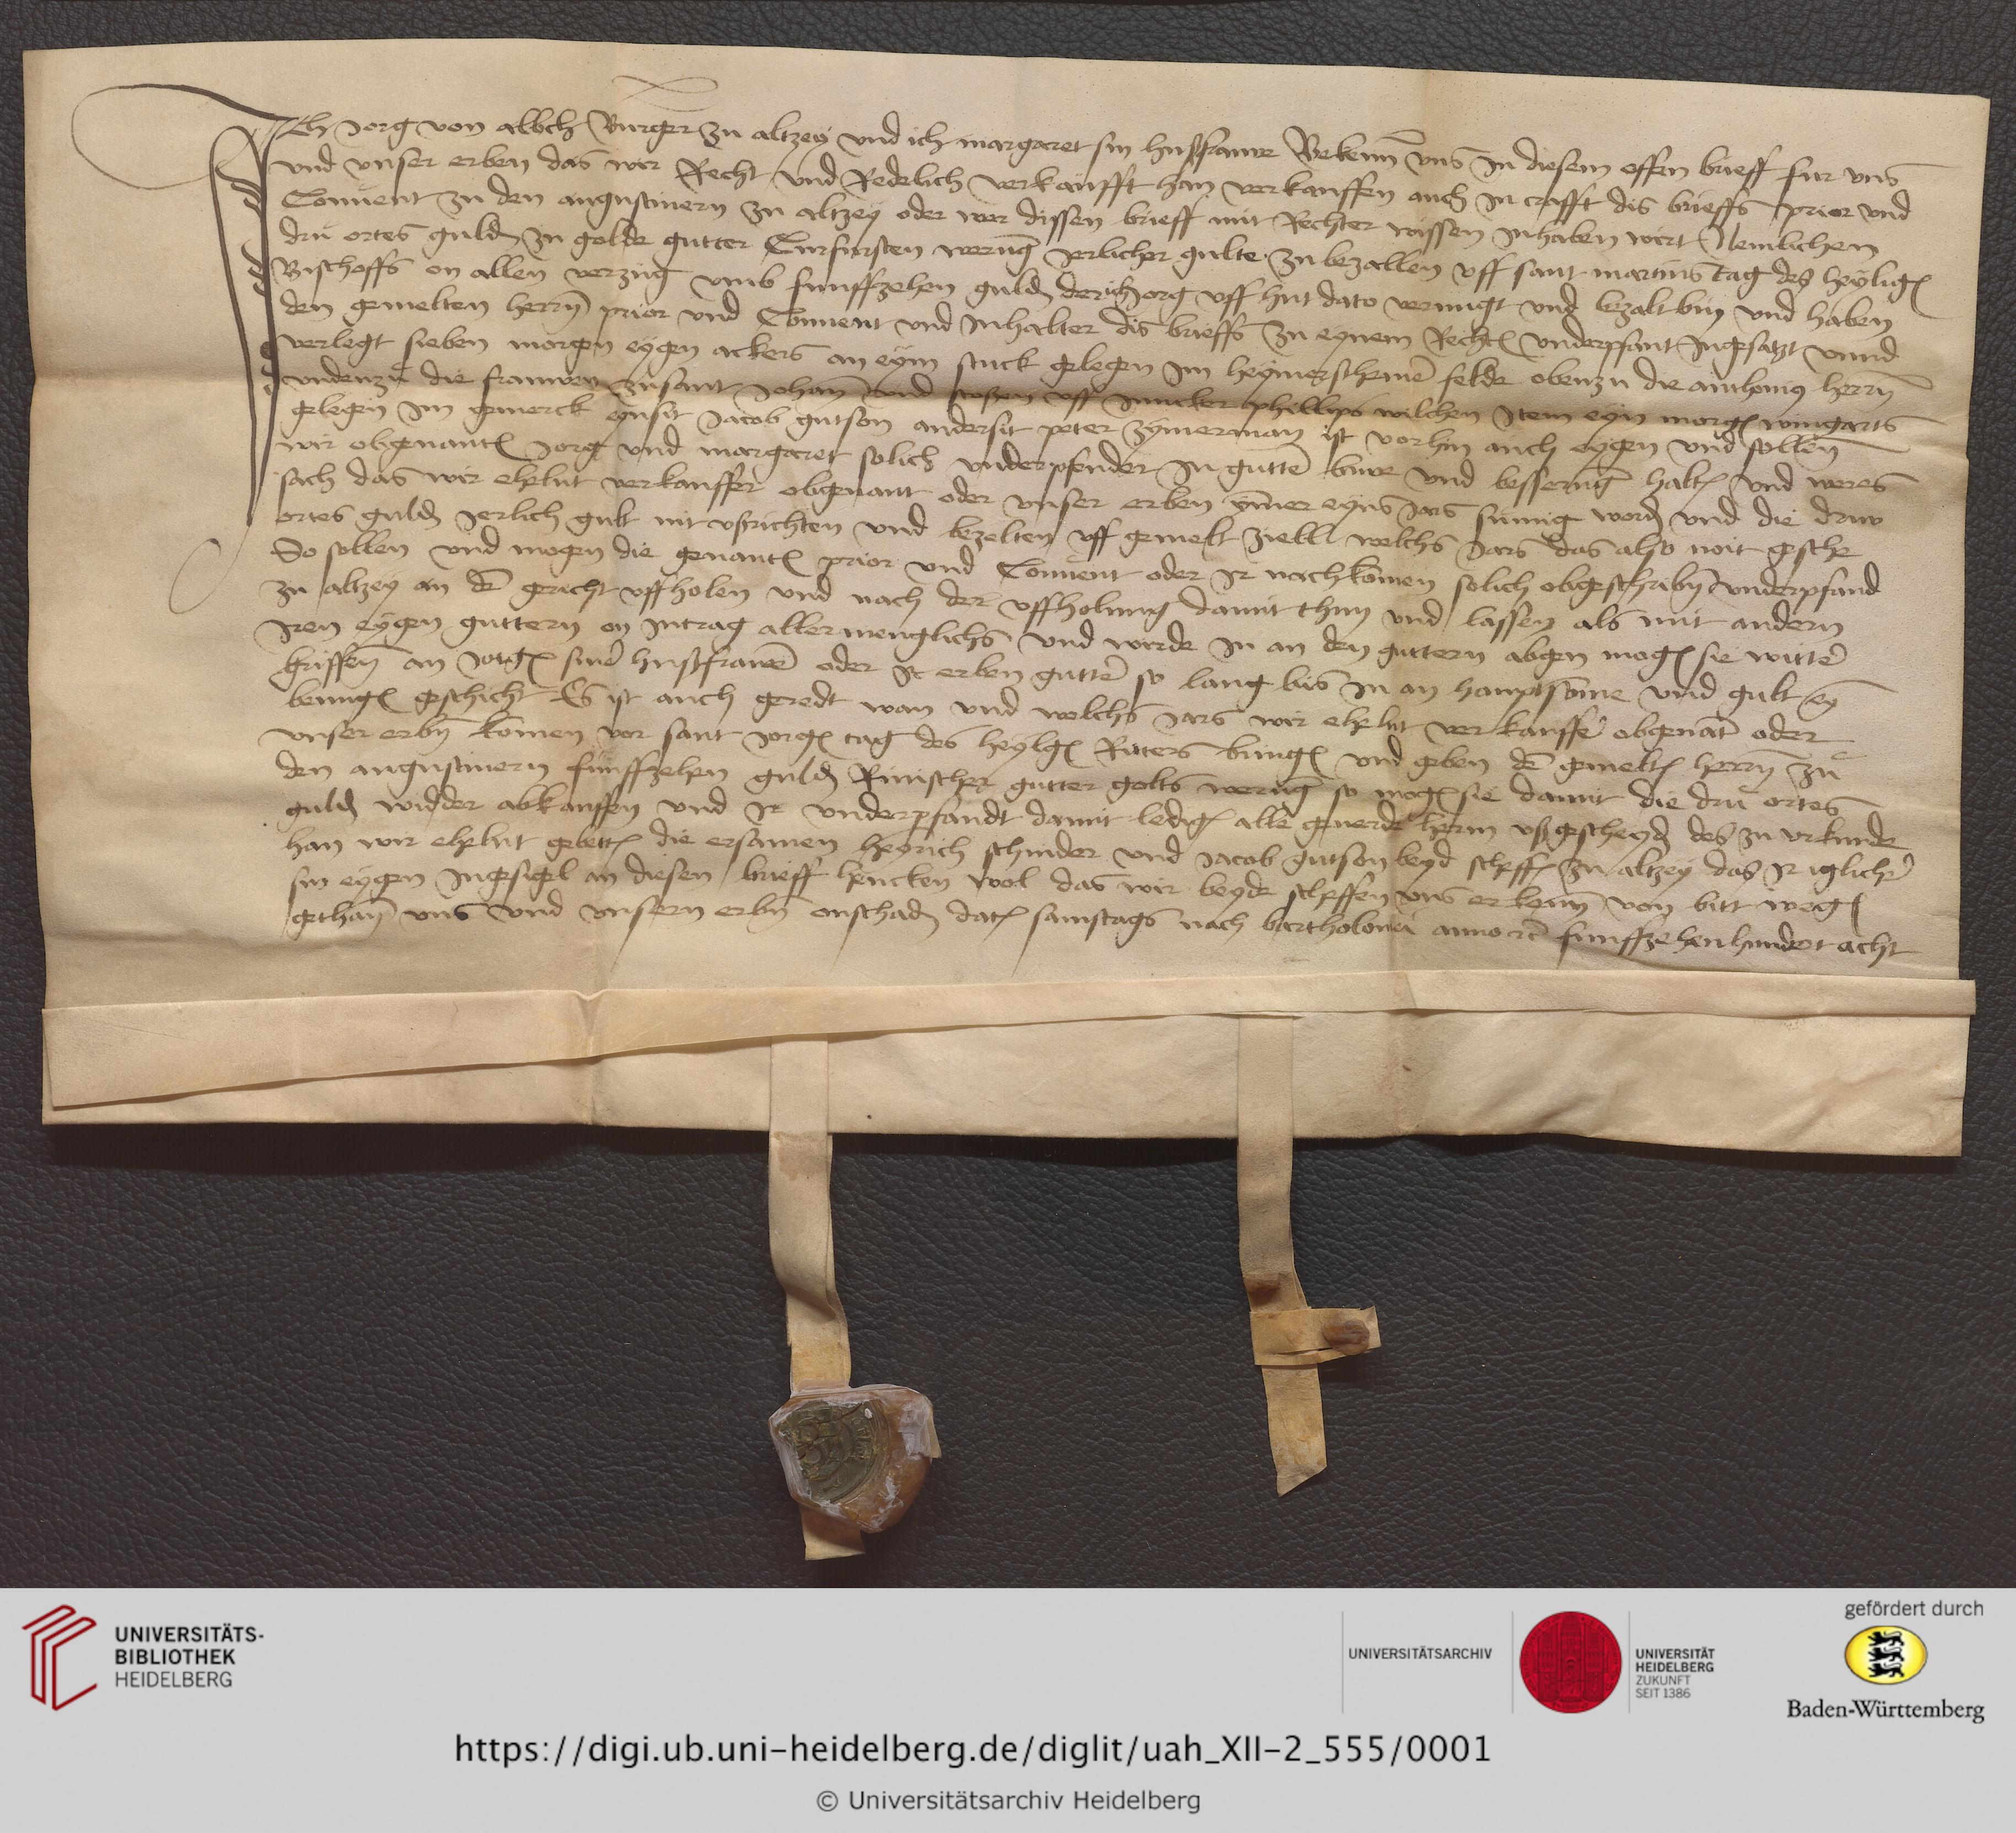 Ich Jorg von albch Burger zu altzey vnd ich margaret sin husfrauwe Bekenn vns In diesem offen brieff fur vns
vnd vnser erben das wir Recht vnd Redelich verkaufft han verkauffen auch in crafft dis brieffs prior vnd
Conuent zu den augustinern zu altzey oder wer dissen brieff mit Rechter wissen Inhaben wirt Nemlichen
dru ortes guld zu golde gutter Curfursten werug jerlicher gulte zu bezallen vff sant martins tag des heylig
Bischoffs on allen verzug vmb funffzehen guld der ich Jorg vff hut dato vernugt vnd bezalt bin vnd haben
den gemelten herrn prior vnd Conuent vnd Inhalter dis brieffs zu eynem Recht vnderpfant Ingesatzt vnnd
verlegt sieben morgen eygen ackers an eym stuck gelegen Im heymerschemer felde obenzu die anthonius herrn
vndenzu die frauwen zu sant Johan vnd stossen vff Juncker phillips wilchen Item eyn morg wingarts
gelegen Im gemerck eynsit Jacob gutson andersit peter zymerman ist vorhin auch eygen vnd sollen
wir obgenant Jorg vnd margaret solich vnderpfender In gutte buwe vnd besserug halt vnd weres
sach das wir elelut verkauffer obgenant oder vnser erben ymer eyns Jars sumig word vnd die druw
ortes guld Jerlich gult nit vsrichten vnd bezelten vff gemelt ziell welchs Jars das also noit gesche
So sollen vnd mogen die genant prior vnd Conuent oder Ir nachkomen solich obgeschribn vnderpfand
zu altzey an de gericht vffholen vnd nach der vffholung damit thun vnd lassen als mit andern
Iren eygen guttern on Intrag allermenglichs vnd wurde In an den guttern abgen mog sie witter
griffen an Jorg siner husfrauwe oder Ir erben gutter so lang bis In an hauptsome vnd gult eyn
benug geschicht Es ist auch geredt wan vnd welchs Jars wir elelut verkauffer obgenat oder
vnser erbn komen vor sant Jorg tag des heylg Ritters bring vnd geben de gemelt herrn zu
den augustinern funffzehen guld Rinischer gutter golts werug so mog sie damit die dru ortes
guld widder abkauffen vnd Ir vnderpfandt damit ledig alle geuerde herin vsgescheyd des zu vrkunde
han wir elelut gebett die ersamen heyrich schnider vnd Jacob gutson beyd scheff zu altzey das Ir iglicher
sin eygen Ingesigel an diesen brieff hencken wol das wir beyde scheffen vns erkenn von bitt weg
gethan vns vnd vnsern erbn onschad dat samstags nach bartholomei anno rc funffzehenhundert acht
UNIVERSITÄTS-
BIBLIOTHEK
HEIDELBERG
UNIVERSITÄTSARCHIV
UNIVERSITÄT
HEIDELBERG
ZUKUNFT
SEIT 1386
gefördert durch
Baden-Württemberg
https://digi.ub.uni-heidelberg.de/diglit/uah_XII-2_555/0001
© Universitätsarchiv Heidelberg